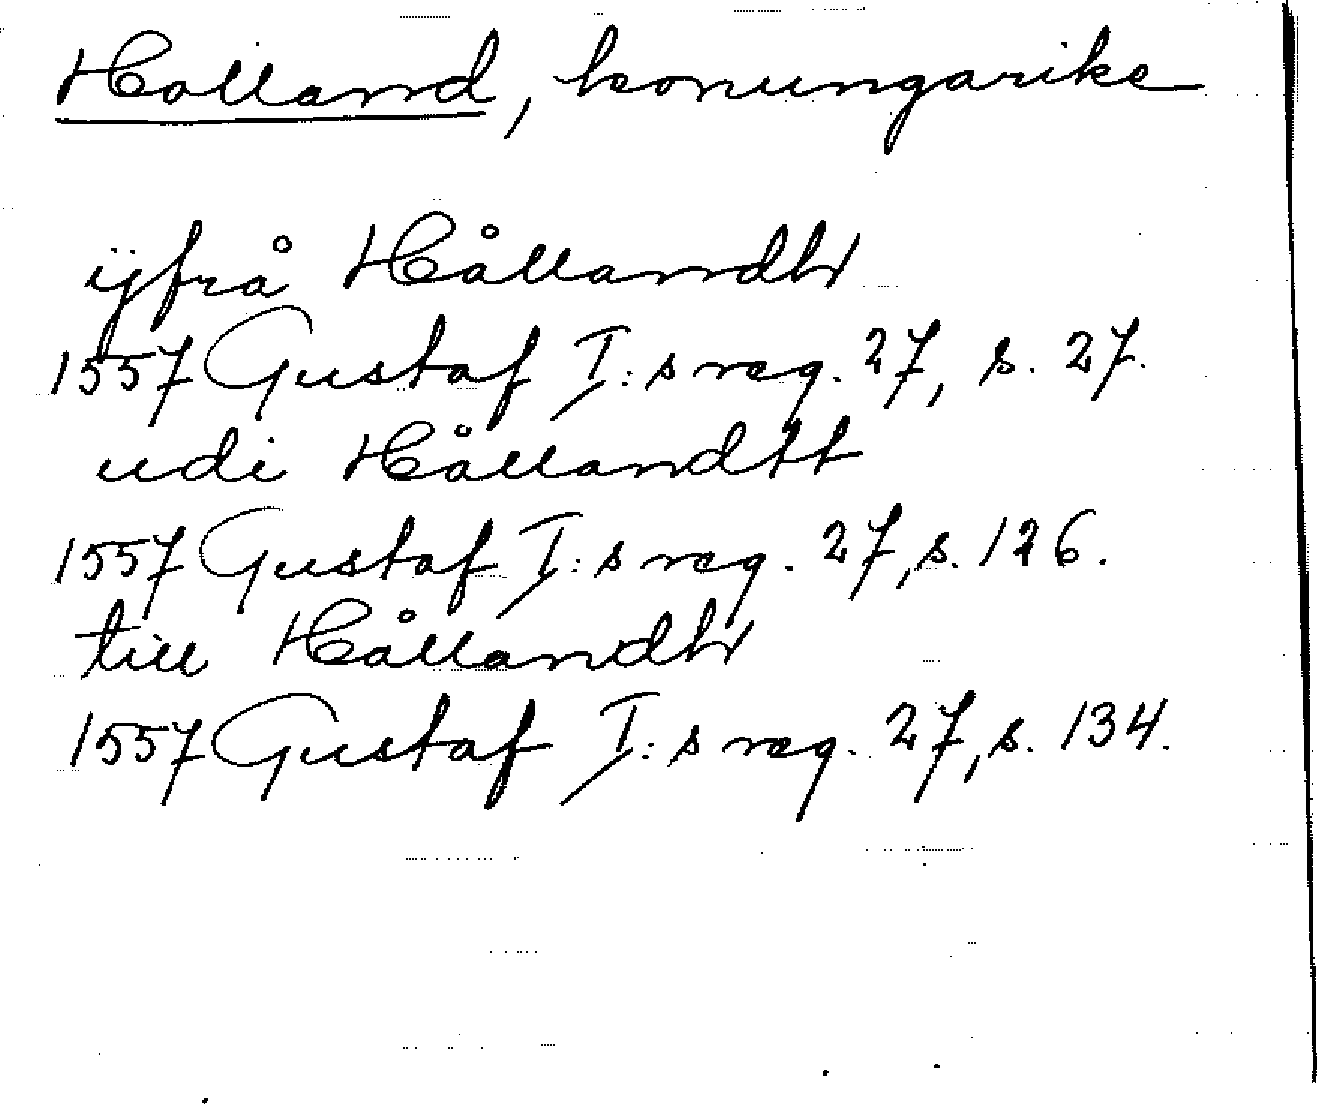 Holland, konungarike
ijfrå Hållandh
1557 Gustaf I:s reg. 27, s. 27.
udi Hållandtt
1557 Gustaf I:s reg. 27, s. 126.
till Hållandh
1557 Gustaf I:s reg. 27, s. 134.